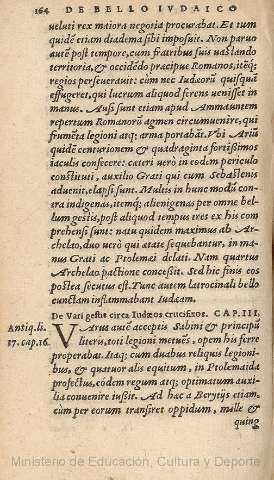 164 DE BELLO IVDAICO
veluti rex maiora negotia procurabat. Et tum
quidē etiam diadema sibi imposuit. Non paruo
autē post tempore, cum fratribus suis vastando
territoria, & occidēdo præcipue Romanos, itēq;
regios perseuerauit: cùm nec Iudæorū quisquã
effugeret, qui lucrum aliquod ferens venisset in
manus. Ausi sunt etiam apud Ammauntem
repertum Romanorũ agmen circumuenire, qui
frumēta legioni atq; arma portabãt. Vbi Ariũ
quidē centurionem & quadraginta fortissimos
iaculis confecere: cæteri verò in eodem periculo
constituti, auxilio Grati qui cum Sebastenis
aduenit, elapsi sunt. Multis in hunc modũ con-
tra indigenas, itemq; alienigenas per omne bel-
lum gestis, post aliquod tempus tres ex his com
prehensi sunt: natu quidem maximus ab Ar-
chelao, duo verò qui ætate sequebantur, in ma-
nus Grati ac Ptolemæi delati. Nam quartus
Archelao pactione concessit. Sed hic finis eos
postea secutus est. Tunc autem latrocinali bello
cunctam inflammabant Iudæam.
De Vari gestis circa Iudæos crucifixos. CAP. III.
Antiq. li.
17. cap. 16.
VArus autē acceptis Sabini & principũ
literis, toti legioni metuēs, opem his ferre
properabat. Itaq; cum duabus reliquis legioni-
bus, & quatuor alis equitum, in Ptolemaida
profectus, eódem regum atq; optimatum auxi-
lia conuenire iussit. Ad hæc a Berytijs etiam,
cùm per eorum transiret oppidum, mille &
quing
Ministerio de Educación, Cultura y Deporte